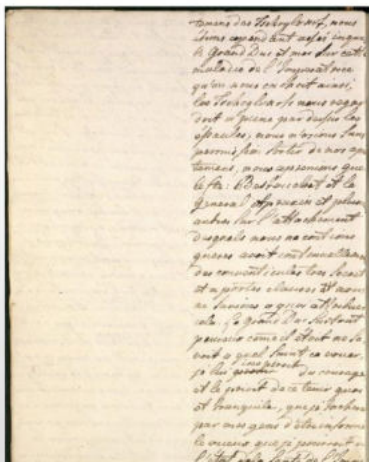 nous
étions cependant assés inquie
le Grand Duc et moi sur cette
maladie de l'Imperatrice
qu'on nous cachoit aussi,
les Schoglokof nous regar
doit a peine par dessus les
épaules, nous n'osions sans
permission sortir de nos apa
temens, nous aprenions que
le Cte: Bestouchef et le
General Apraxin et plusieurs
autres sur l'attachement
desquels nous ne contions
gueres avoit continuellemen
des conventicules tres secret
et a portes closes et nous
ne savions a quoi attribuer
cela. Le Grand Duc surtout
peureux come il étoit ne sa
voit a quel Saint ce vouer,
je lui inspirois du courage
et le priois de ce tenir quoi
et tranquile, que je tacherai
par mes gens d'être informé
le mieux que je pourrois de
l'état de la santé de l'Imper